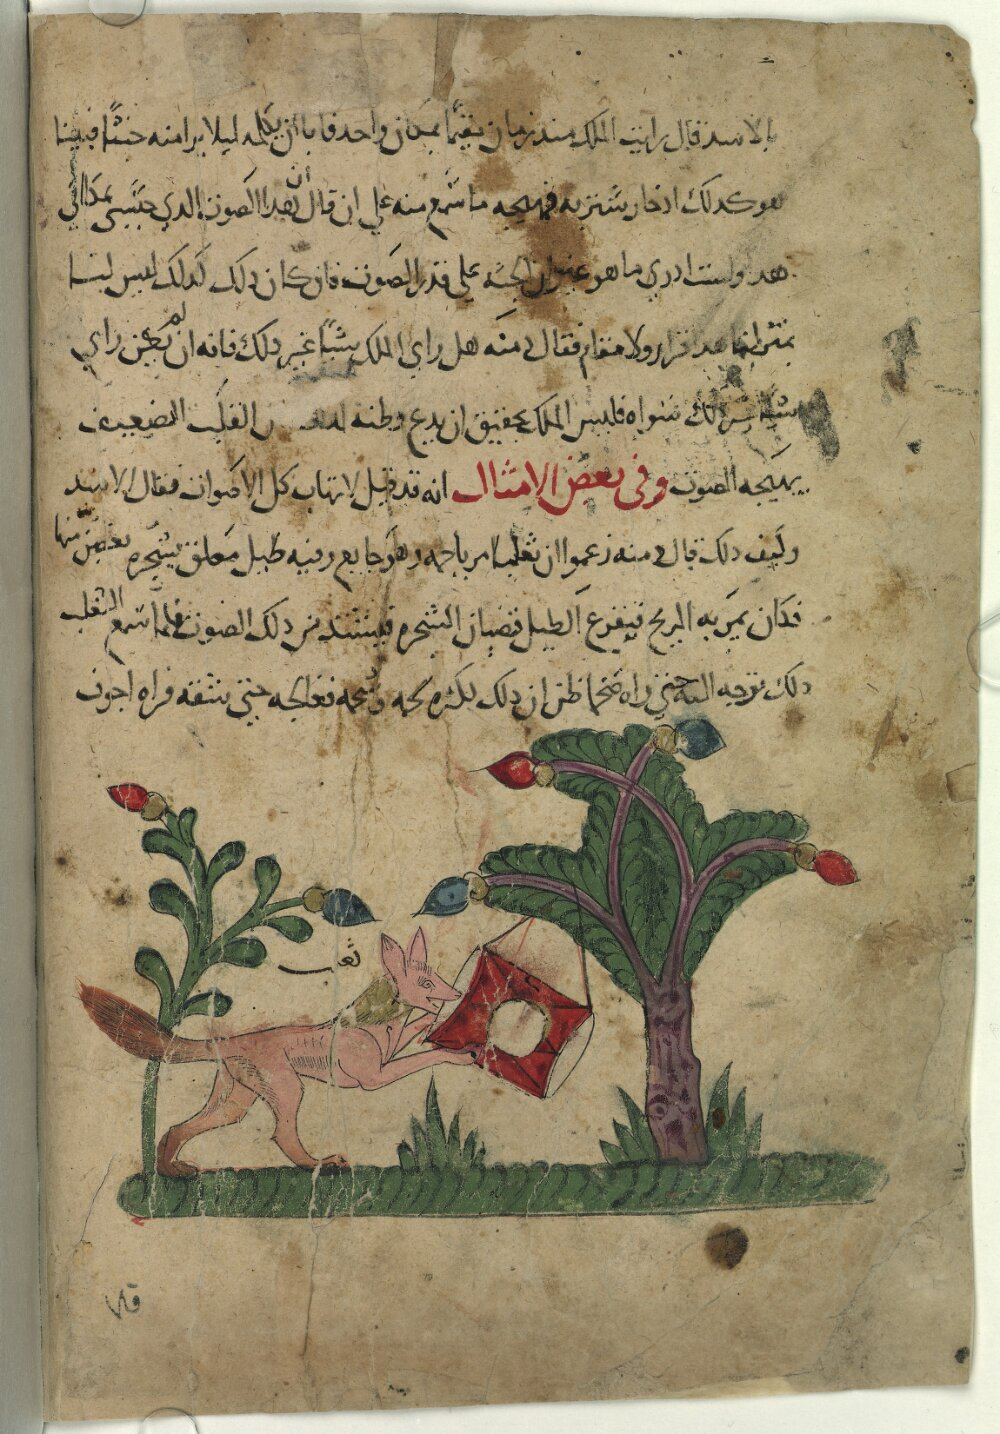 بالاسد قال رايت الملك منذ زمان مقيما بمكان واحد فابا ان يكلمه ليلا يرا منه خبثا فبينا
هو كذلك اذ خار شتربه فهيجه ما سمع منه علي ان قال ان هذا الصوت الدي حبسني بمكاني
هدا ولست ادري ما هو غير ان الجثه علي قدر الصوت فان كان دلك كدلك فليس لنا
هدا قرار ولا مقام فقال دمنه هل راي الملك شيئا غير دلك فانه ان لم يكن راي
سواه فليس الملك بحقيق ان يدع وطنه القلب الضعيف
يهيجه الصوت وفي بعض الامثال انه قد قيل لا تهاب كل الاصوات فقال الاسد
وكيف دلك قال دمنه زعموا ان ثعلبا مر باجمه وهو جايع وفيه طبل معلق بشجره بعض منها
فكان يمر به الريح فيقرع الطبل قضبان الشجره فيشتد دلك الصوت فلما سمع الثعلب
دلك توجه اليه حتي راه ضخما ظن ان دلك لكثره لحمه وشحمه فعالجه حتي شقه فراه اجوف
ثعلب
قال